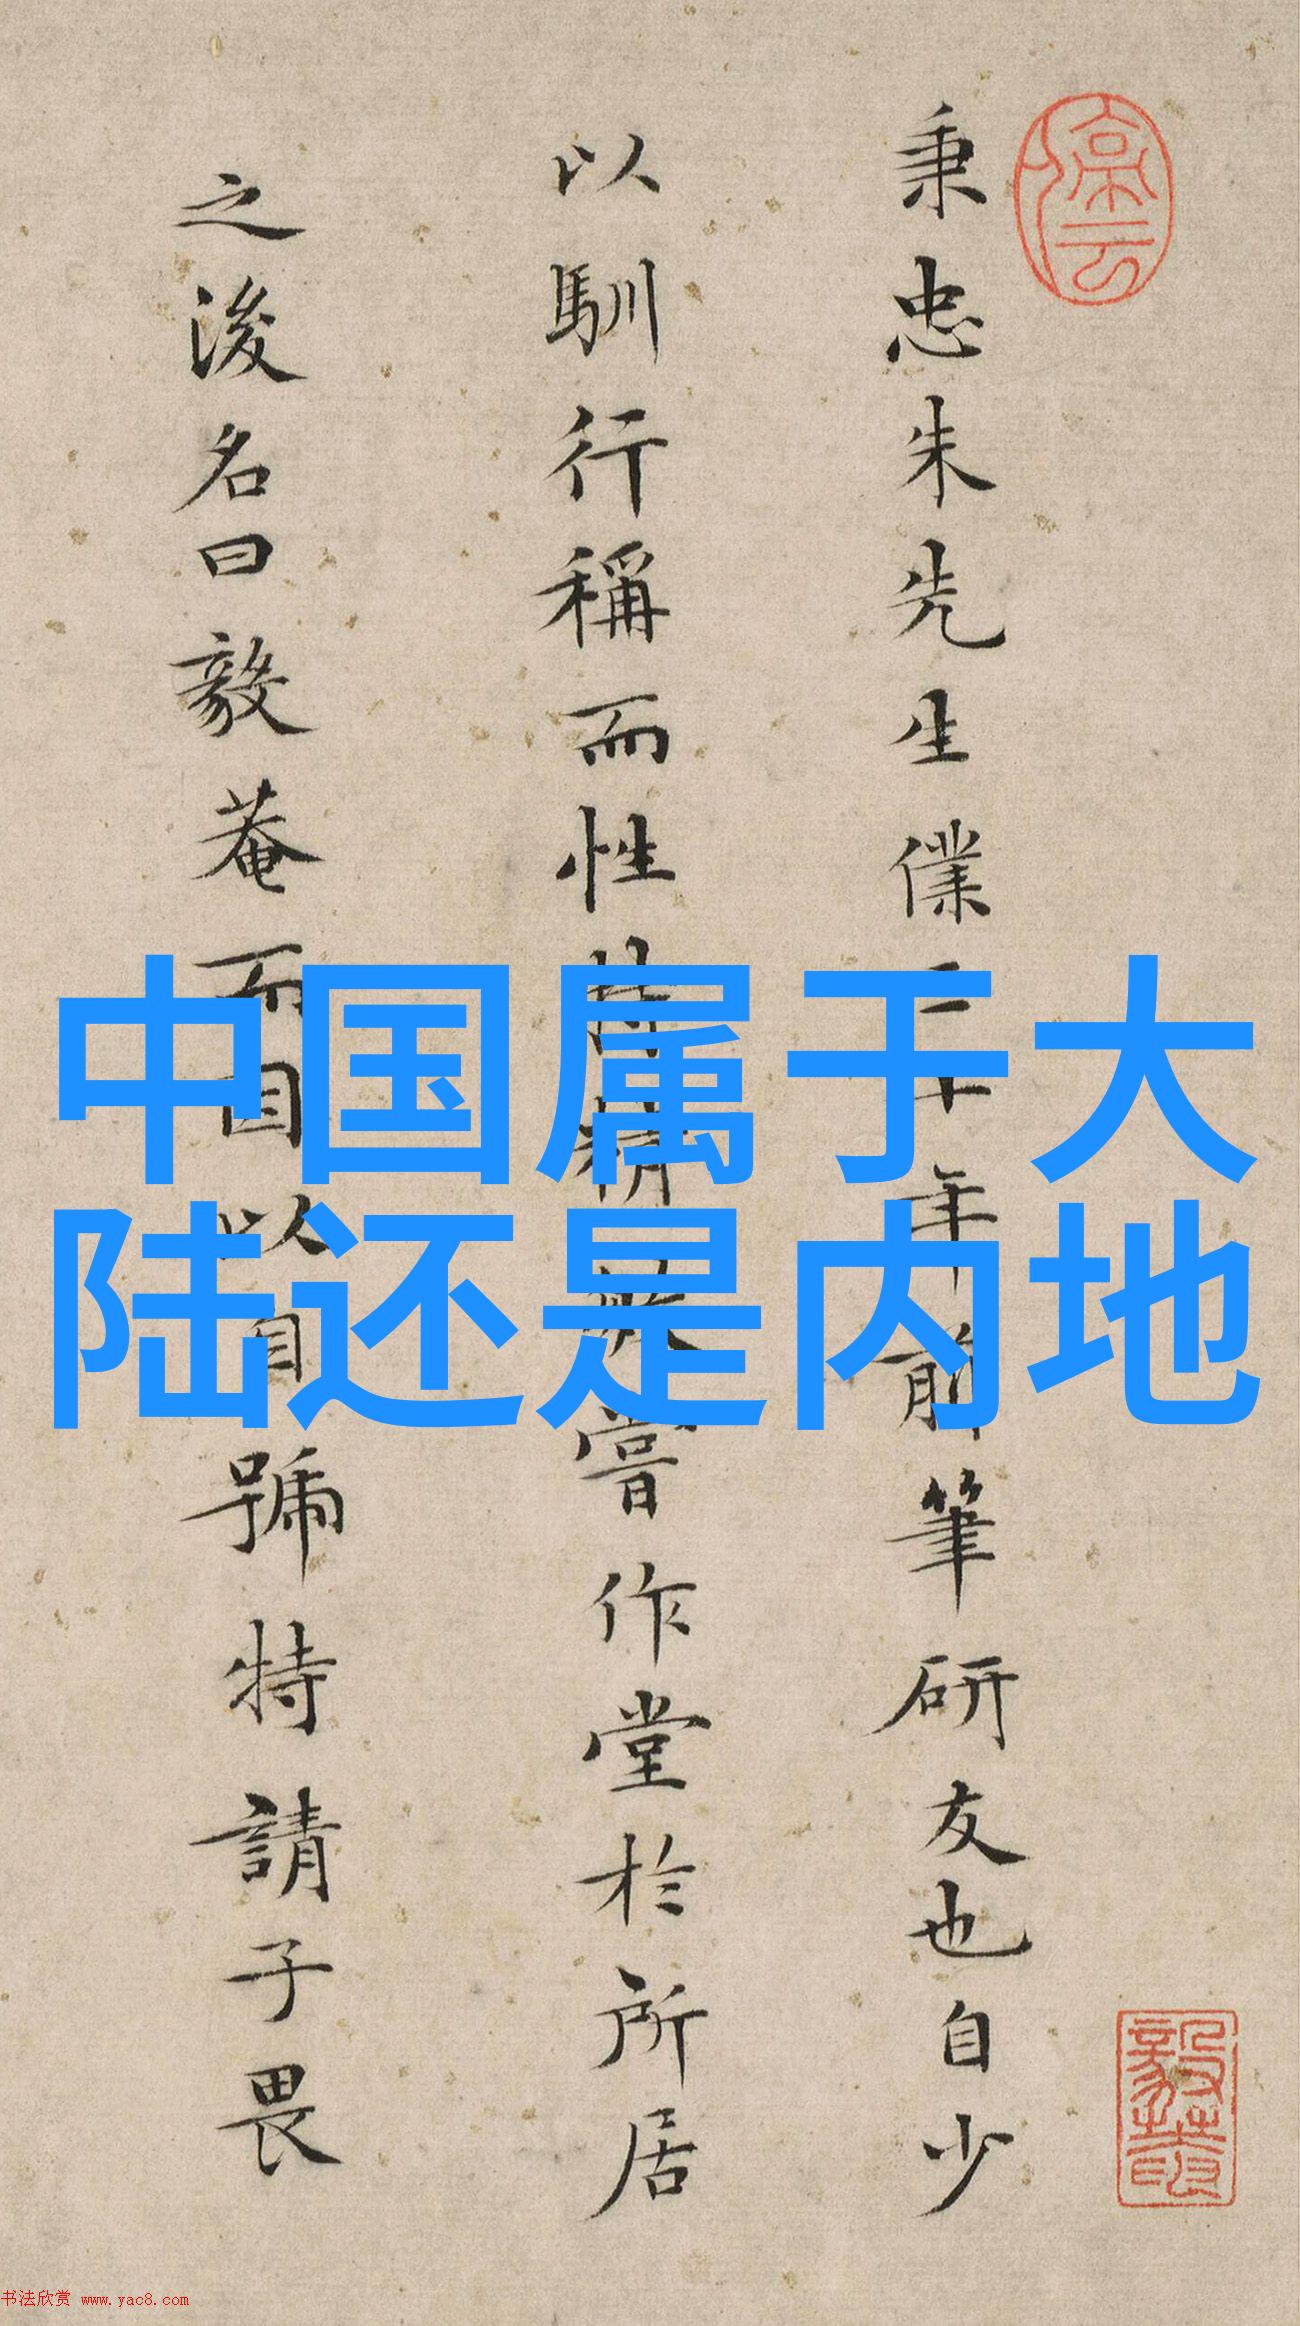 中国属于大
陆还是内地
秉忠朱先生僕二十年前筆研友也自少
以馴行稱而性
嘗作堂於所居
之後名曰毅菴而因以自號特請子畏
书法欣赏 www.yac8.com